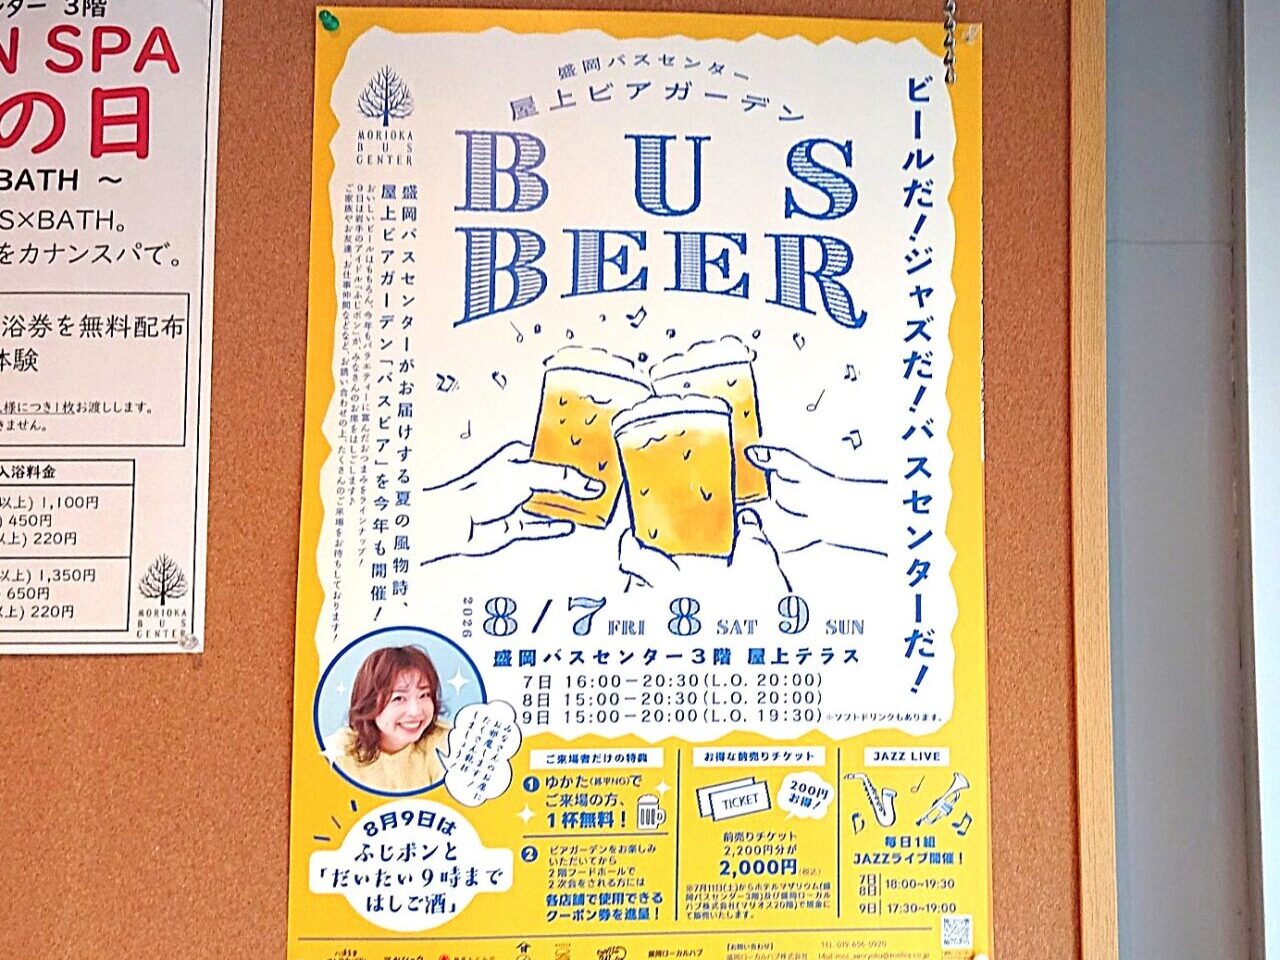 ター 3階
N SPA
の日
BATH ～
S×BATH。
をカナンスパで。
浴券を無料配布
体験
様につき1枚お渡しします。
きません。
入浴料金
以上) 1,100円
450円
以上) 220円
以上) 1,350円
650円
以上) 220円
MORIOKA
BUS
CENTER
MORIOKA
BUS
CENTER
盛岡バスセンター
屋上ビアガーデン
BUS
BEER
ビールだ!ジャズだ!バスセンターだ!
盛岡バスセンターがお届けする夏の風物詩、
屋上ビアガーデン「バスビア」を今年も開催!
おいしいビールはもちろん、今年もバラエティーに富んだおつまみをラインナップ!
9日は岩手のアイドル「ふじポン」が、みなさんのお席をはしごします♪
ご家族やお友達、お仕事仲間などなど、お誘い合わせの上、たくさんのご来場をお待ちしております!
2026
8/7 FRI 8 SAT 9 SUN
盛岡バスセンター3階 屋上テラス
7日 16:00−20:30(L.O. 20:00)
8日 15:00−20:30(L.O. 20:00)
9日 15:00−20:00(L.O. 19:30)
※ソフトドリンクもあります。
みなさんのお席に
お邪魔します!
たくさん乾杯
しましょう!
8月9日は
ふじポンと
「だいたい9時まで
はしご酒」
ご来場者だけの特典
1 ゆかた(甚平NG)で
ご来場の方、
1杯無料!
2 ビアガーデンをお楽しみ
いただいてから
2階フードホールで
2次会をされる方には
各店舗で使用できる
クーポン券を進呈!
お得な前売りチケット
TICKET
200円
お得!
前売りチケット
2,200円分が
2,000円(税込)
※7月11日(土)からホテルマザリウム(盛
岡バスセンター3階)及び盛岡ローカル
ハブ株式会社(マリオス20階)で現金に
て販売いたします。
JAZZ LIVE
毎日1組
JAZZライブ開催!
7日
8日
18:00~19:30
9日 17:30~19:00
盛岡ローカルハブ
【お問い合わせ】
盛岡ローカルハブ株式会社
TEL:019-606-0920